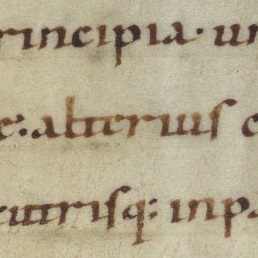 rincipia· un
e: alterius e
cutrisq: inp